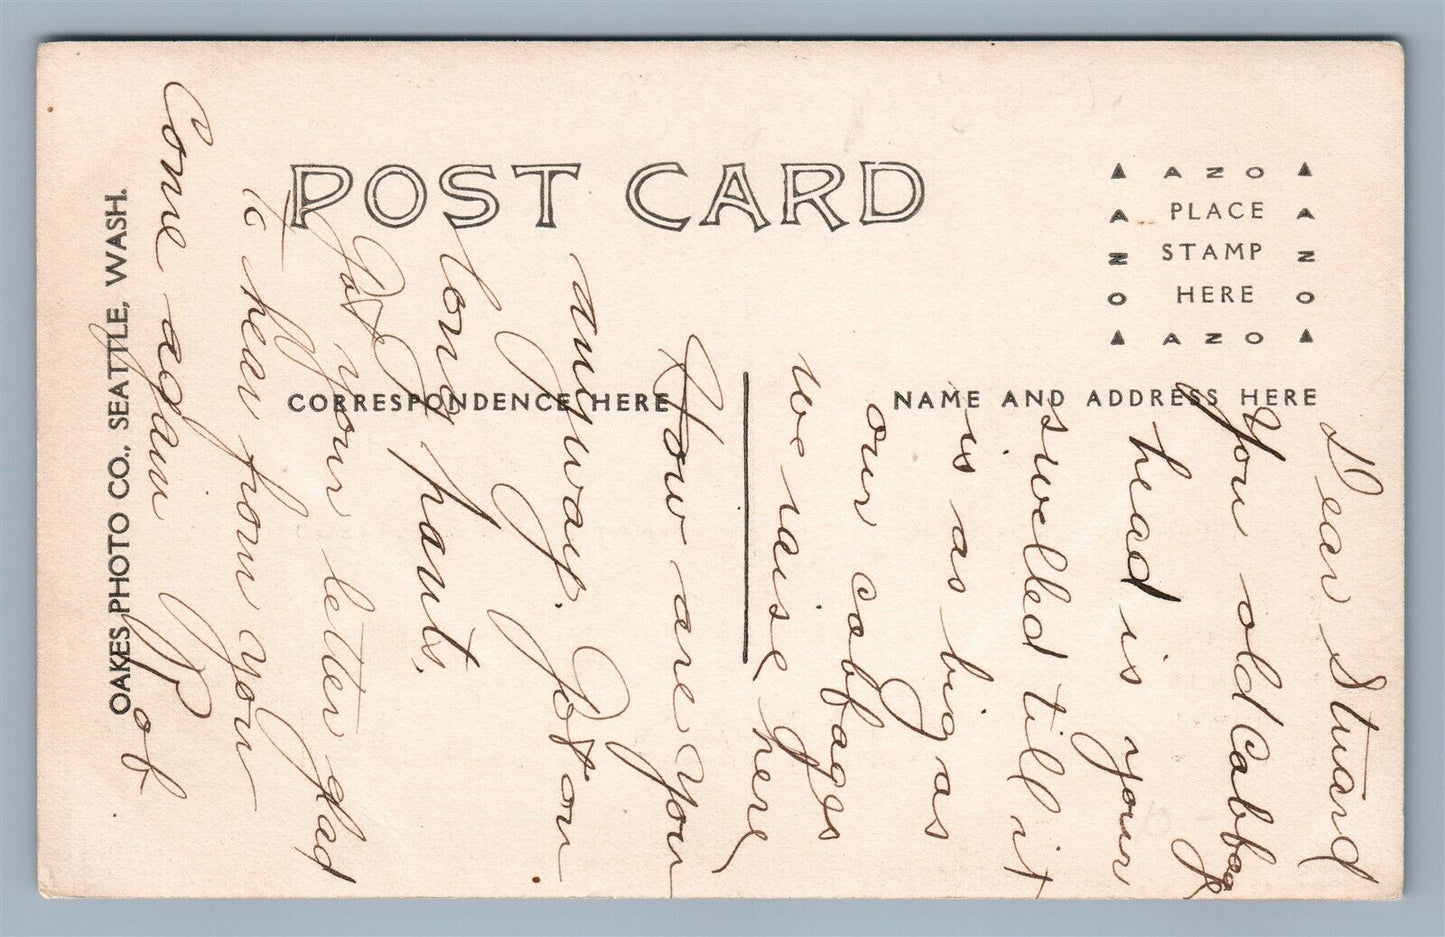 POST CARD
CORRESPONDENCE HERE
NAME AND ADDRESS HERE
AZO
PLACE
STAMP
HERE
AZO
AZO
AZO
OAKES PHOTO CO., SEATTLE, WASH.
Dear Stuard
You old Cabbag
head is your
swelled till it
is as big as
our cabbages
we raise here
How are you
anyway. Got on
long pants,
Got your letter glad
to hear from you
Come again Bob